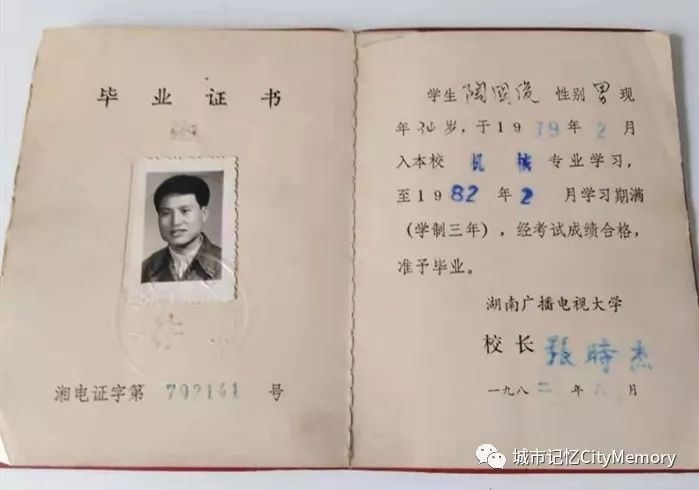 毕业证书
湘电证字第 792141 号
学生陶国俊 性别男 现
年34岁，于1979年2月
入本校 机械 专业学习，
至1982年2月学习期满
（学制三年），经考试成绩合格，
准予毕业。
湖南广播电视大学
校长 張時杰
一九八二年 月
城市记忆CityMemory